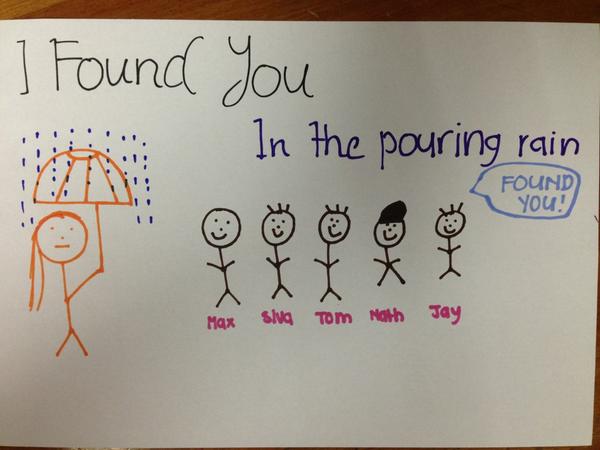 I Found You
In the pouring rain
FOUND
YOU!
Max Siva Tom Nath Jay